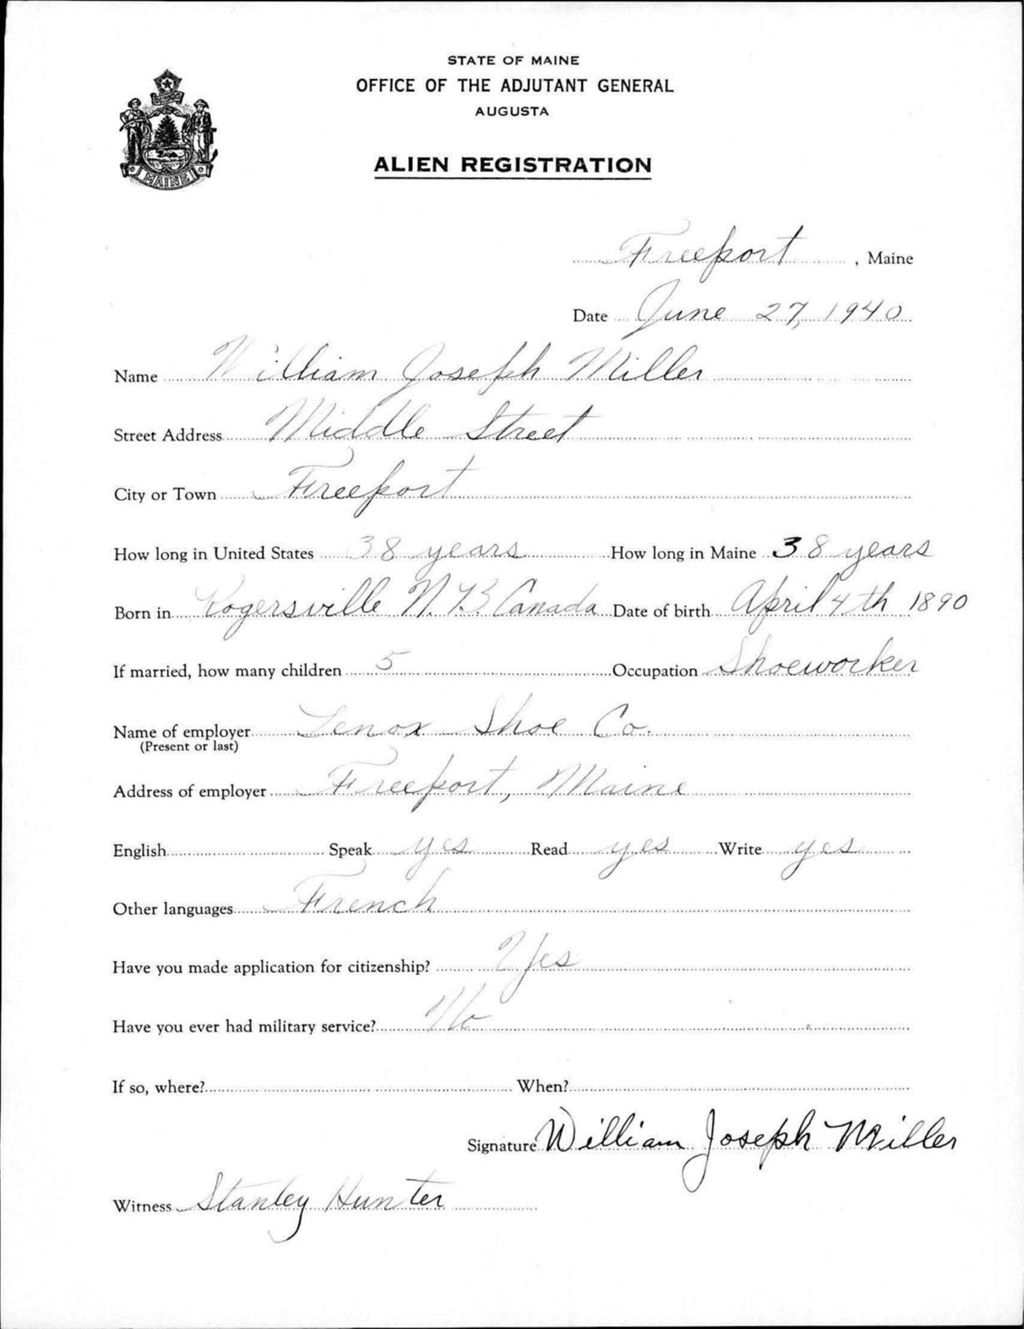 STATE OF MAINE
OFFICE OF THE ADJUTANT GENERAL
AUGUSTA
ALIEN REGISTRATION
MAINE
Freeport, Maine
Date June 27, 1940
Name William Joseph Miller
Street Address Middle Street
City or Town Freeport
How long in United States 38 years How long in Maine 38 years
Born in Rogersville N. B. Canada Date of birth April 4th 1890
If married, how many children 5 Occupation Shoeworker
Name of employer Lenox Shoe Co.
(Present or last)
Address of employer Freeport, Maine
English Speak yes Read yes Write yes
Other languages French
Have you made application for citizenship? Yes
Have you ever had military service? No
If so, where? When?
Signature William Joseph Miller
Witness Stanley Hunter